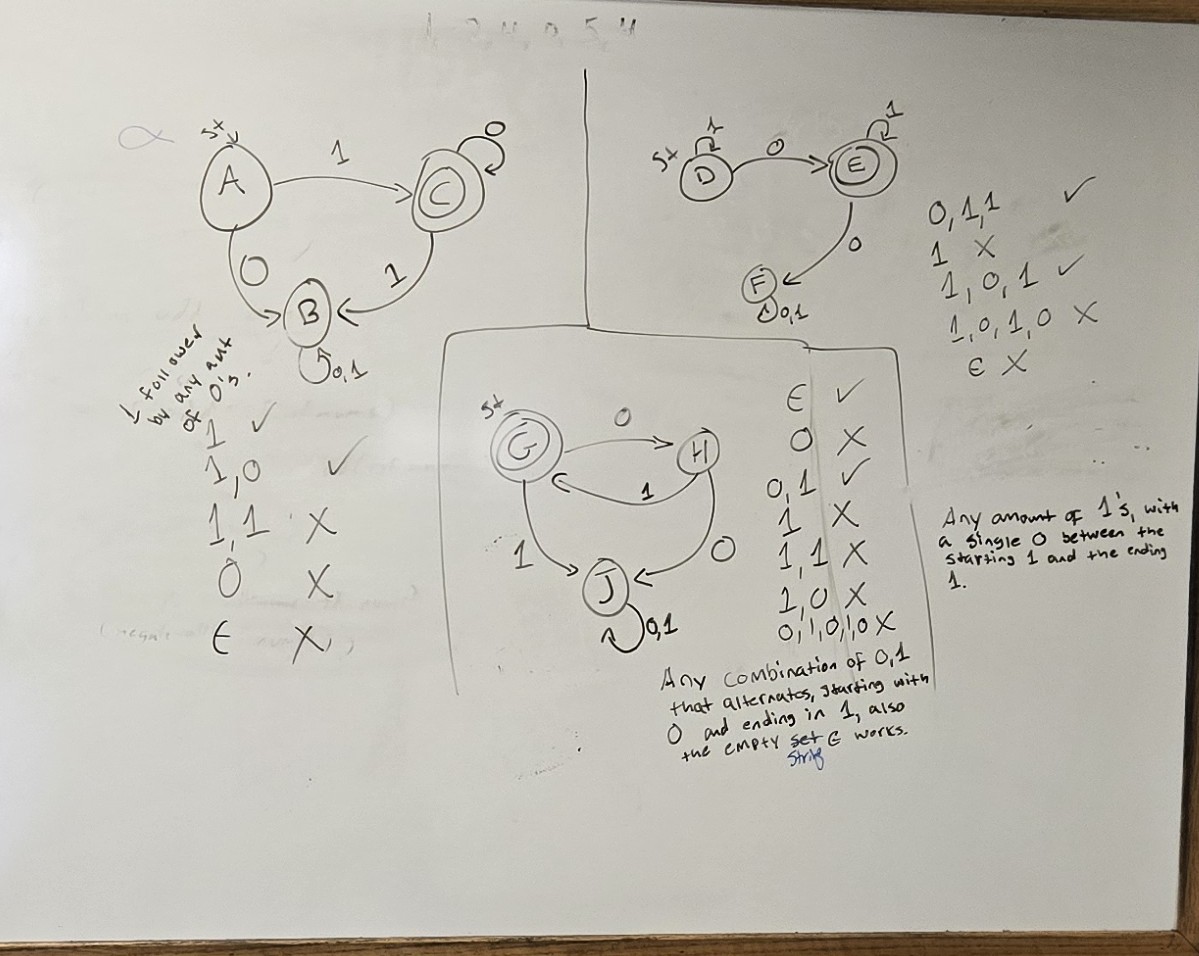 st
A
1
C
0
0
1
B
0,1
1 followed
by any amt
of 0's.
1 ✓
1,0 ✓
1,1 X
0 X
ϵ X
st
D
1
0
E
1
0
F
0,1
0,1,1 ✓
1 X
1,0,1 ✓
1,0,1,0 X
ϵ X
Any amount of 1's, with
a single 0 between the
starting 1 and the ending
1.
st
G
0
H
1
1
0
J
0,1
ϵ ✓
0 X
0,1 ✓
1 X
1,1 X
1,0 X
0,1,0,1,0 X
Any combination of 0,1
that alternates, starting with
0 and ending in 1, also
the empty set ϵ works.
string